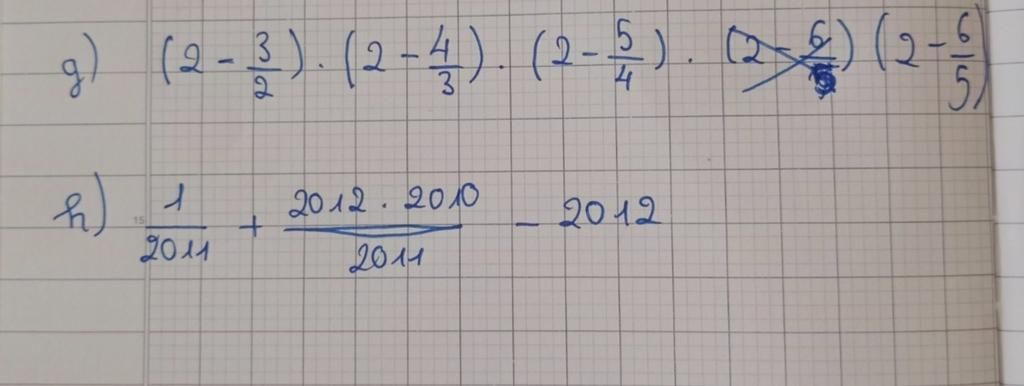 g) (2 - 3/2) · (2 - 4/3) · (2 - 5/4) · (2 - 6/5)
h) 1/2011 + (2012 · 2010)/2011 - 2012